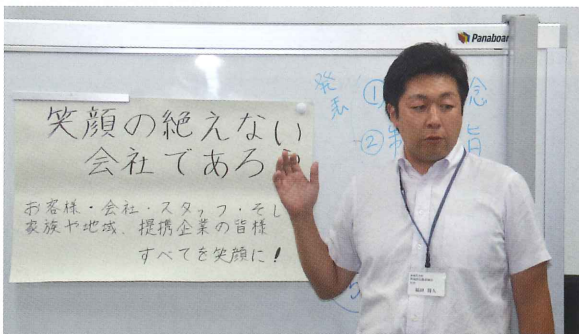 Panaboar
笑顔の絶えない
会社であろう
お客様・会社・スタッフ・そし
家族や地域、提携企業の皆様
すべてを笑顔に!
発表
①
念
②
旨